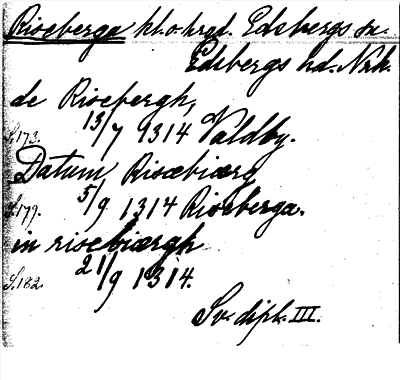 Riseberga kl.o.krgd. Edsbergs sn.
Edsbergs hd. Nrk.
de Risebergh,
S.173. 13/7 1314 Valdby.
Datum Risæbiærg
S.179. 5/9 1314 Riseberga.
in risebiærgh
S.182 21/9 1314.
Sv. dipl. III.